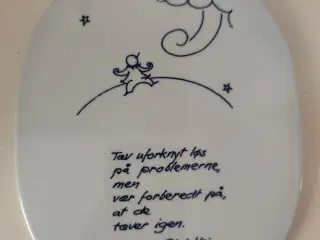 Tæv uforknyt løs
på problemerne,
men
vær forberedt på,
at de
tæver igen.